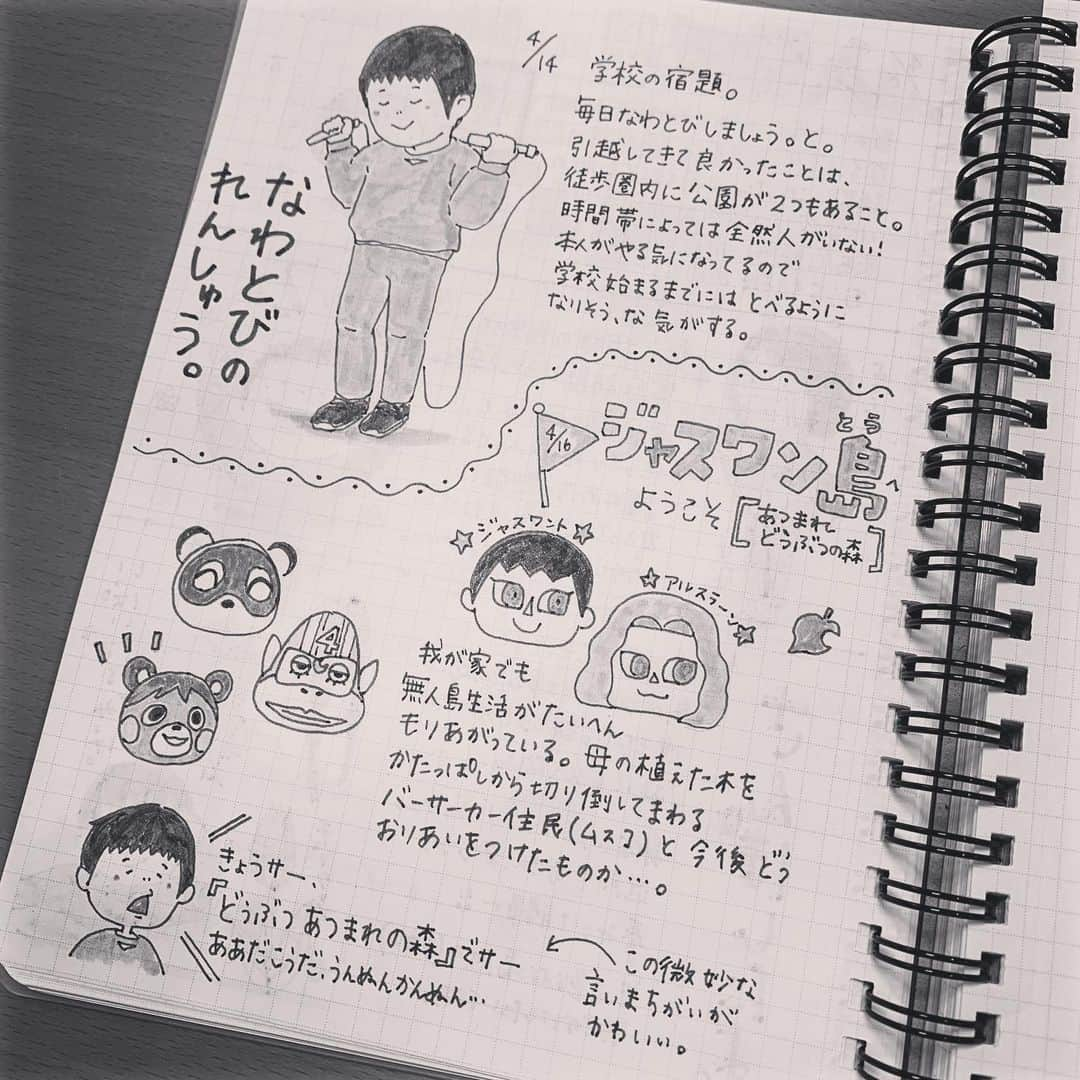 4/14
学校の宿題。
毎日なわとびしましょう。と。
引越してきて良かったことは、
徒歩圏内に公園が2つもあること。
時間帯によっては全然人がいない!
本人がやる気になってるので
学校始まるまでには とべるように
なりそう、な気がする。
なわとびの
れんしゅう。
4/16
とう
ジャスワン島へ
ようこそ
[あつまれ
どうぶつの森]
ジャスワント
アルスラーン
4
我が家でも
無人島生活がたいへん
もりあがっている。母の植えた木を
かたっぱしから切り倒してまわる
バーサーカー住民(ムスコ)と今後どう
おりあいをつけたものか…。
きょうサー、
『どうぶつ あつまれの森』でサー
ああだこうだ、うんぬんかんぬん…
この微妙な
言いまちがいが
かわいい。